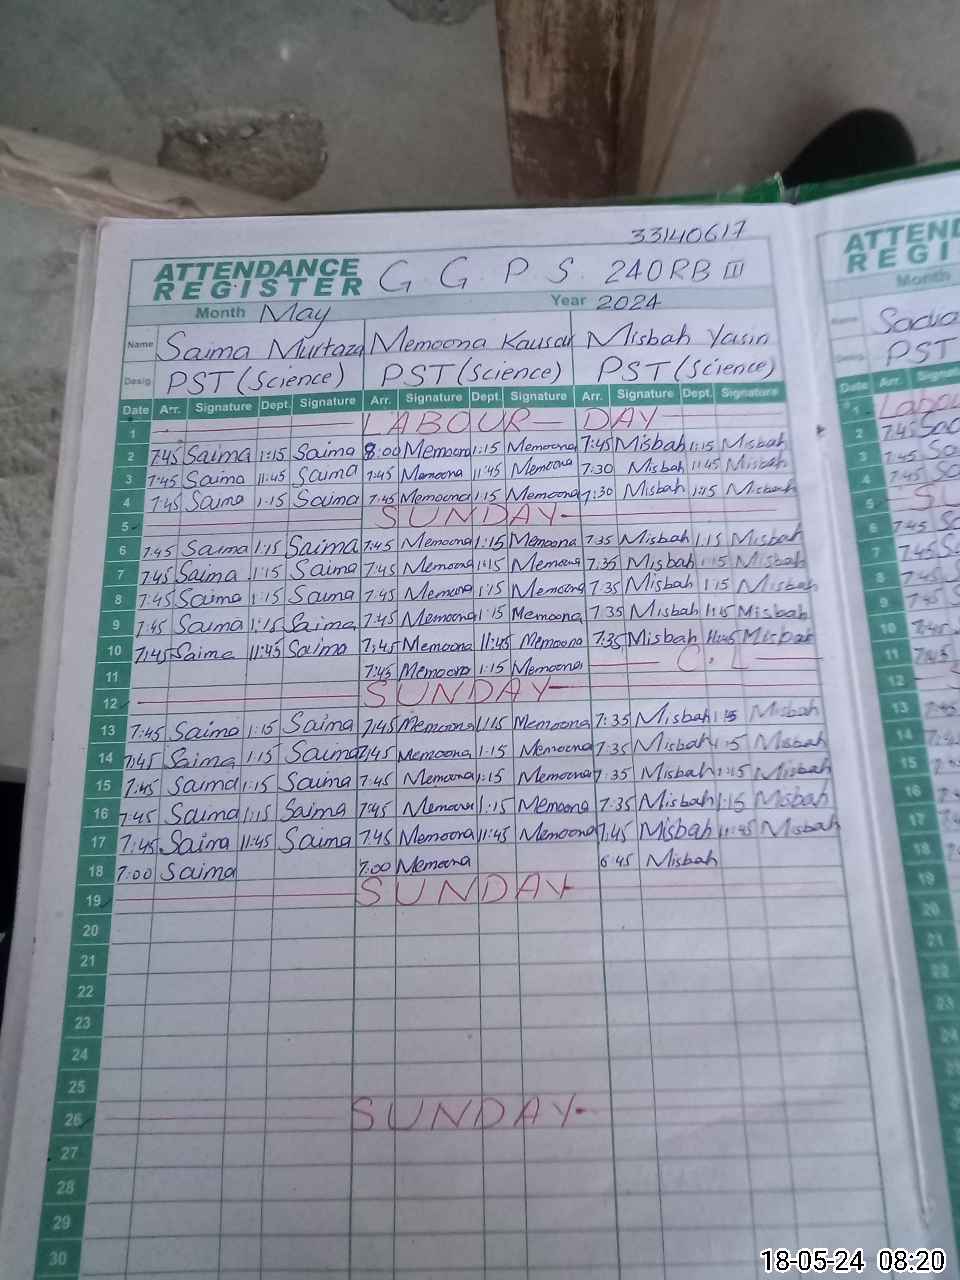 33140617
ATTENDANCE REGISTER G.G.P.S. 240RB III
Month May Year 2024
Name Saima Murtaza Memoona Kausar Misbah Yasin
Desig. PST (Science) PST (Science) PST (Science)
Date Arr. Signature Dept. Signature Arr. Signature Dept. Signature Arr. Signature Dept. Signature
1 LABOUR DAY
2 7:45 Saima 1:15 Saima 8:00 Memoona 1:15 Memoona 7:45 Misbah 1:15 Misbah
3 7:45 Saima 11:45 Saima 7:45 Memoona 11:45 Memoona 7:30 Misbah 11:45 Misbah
4 7:45 Saima 1:15 Saima 7:45 Memoona 1:15 Memoona 7:30 Misbah 1:15 Misbah
5 SUNDAY
6 7:45 Saima 1:15 Saima 7:45 Memoona 1:15 Memoona 7:35 Misbah 1:15 Misbah
7 7:45 Saima 1:15 Saima 7:45 Memoona 1:15 Memoona 7:35 Misbah 1:15 Misbah
8 7:45 Saima 1:15 Saima 7:45 Memoona 1:15 Memoona 7:35 Misbah 1:15 Misbah
9 7:45 Saima 1:15 Saima 7:45 Memoona 1:15 Memoona 7:35 Misbah 1:15 Misbah
10 7:45 Saima 11:45 Saima 7:45 Memoona 11:45 Memoona 7:35 Misbah 11:45 Misbah
11 7:45 Memoona 1:15 Memoona C.L
12 SUNDAY
13 7:45 Saima 1:15 Saima 7:45 Memoona 1:15 Memoona 7:35 Misbah 1:15 Misbah
14 7:45 Saima 1:15 Saima 7:45 Memoona 1:15 Memoona 7:35 Misbah 1:15 Misbah
15 7:45 Saima 1:15 Saima 7:45 Memoona 1:15 Memoona 7:35 Misbah 1:15 Misbah
16 7:45 Saima 1:15 Saima 7:45 Memoona 1:15 Memoona 7:35 Misbah 1:15 Misbah
17 7:45 Saima 11:45 Saima 7:45 Memoona 11:45 Memoona 7:45 Misbah 11:45 Misbah
18 7:00 Saima 7:00 Memoona 6:45 Misbah
19 SUNDAY
20
21
22
23
24
25
26 SUNDAY
27
28
29
30
ATTEND
REGI
Month
PST
Date Arr.
1 Labou
2 7:45
3 7:45
4 7:45
5 SU
6 7:45
7 7:45
8 7:45
9 7:45
10 7:45
11 7:45
12
13 7:45
14
15
16
17
18
19
20
21
22
23
24
18-05-24 08:20